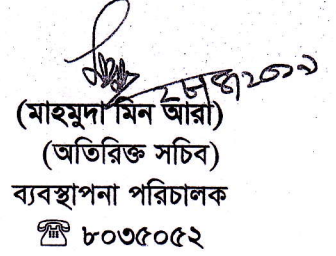 (মাহমুদা মিন আরা)
(অতিরিক্ত সচিব)
ব্যবস্থাপনা পরিচালক
☎ ৮০৩৫০৫২